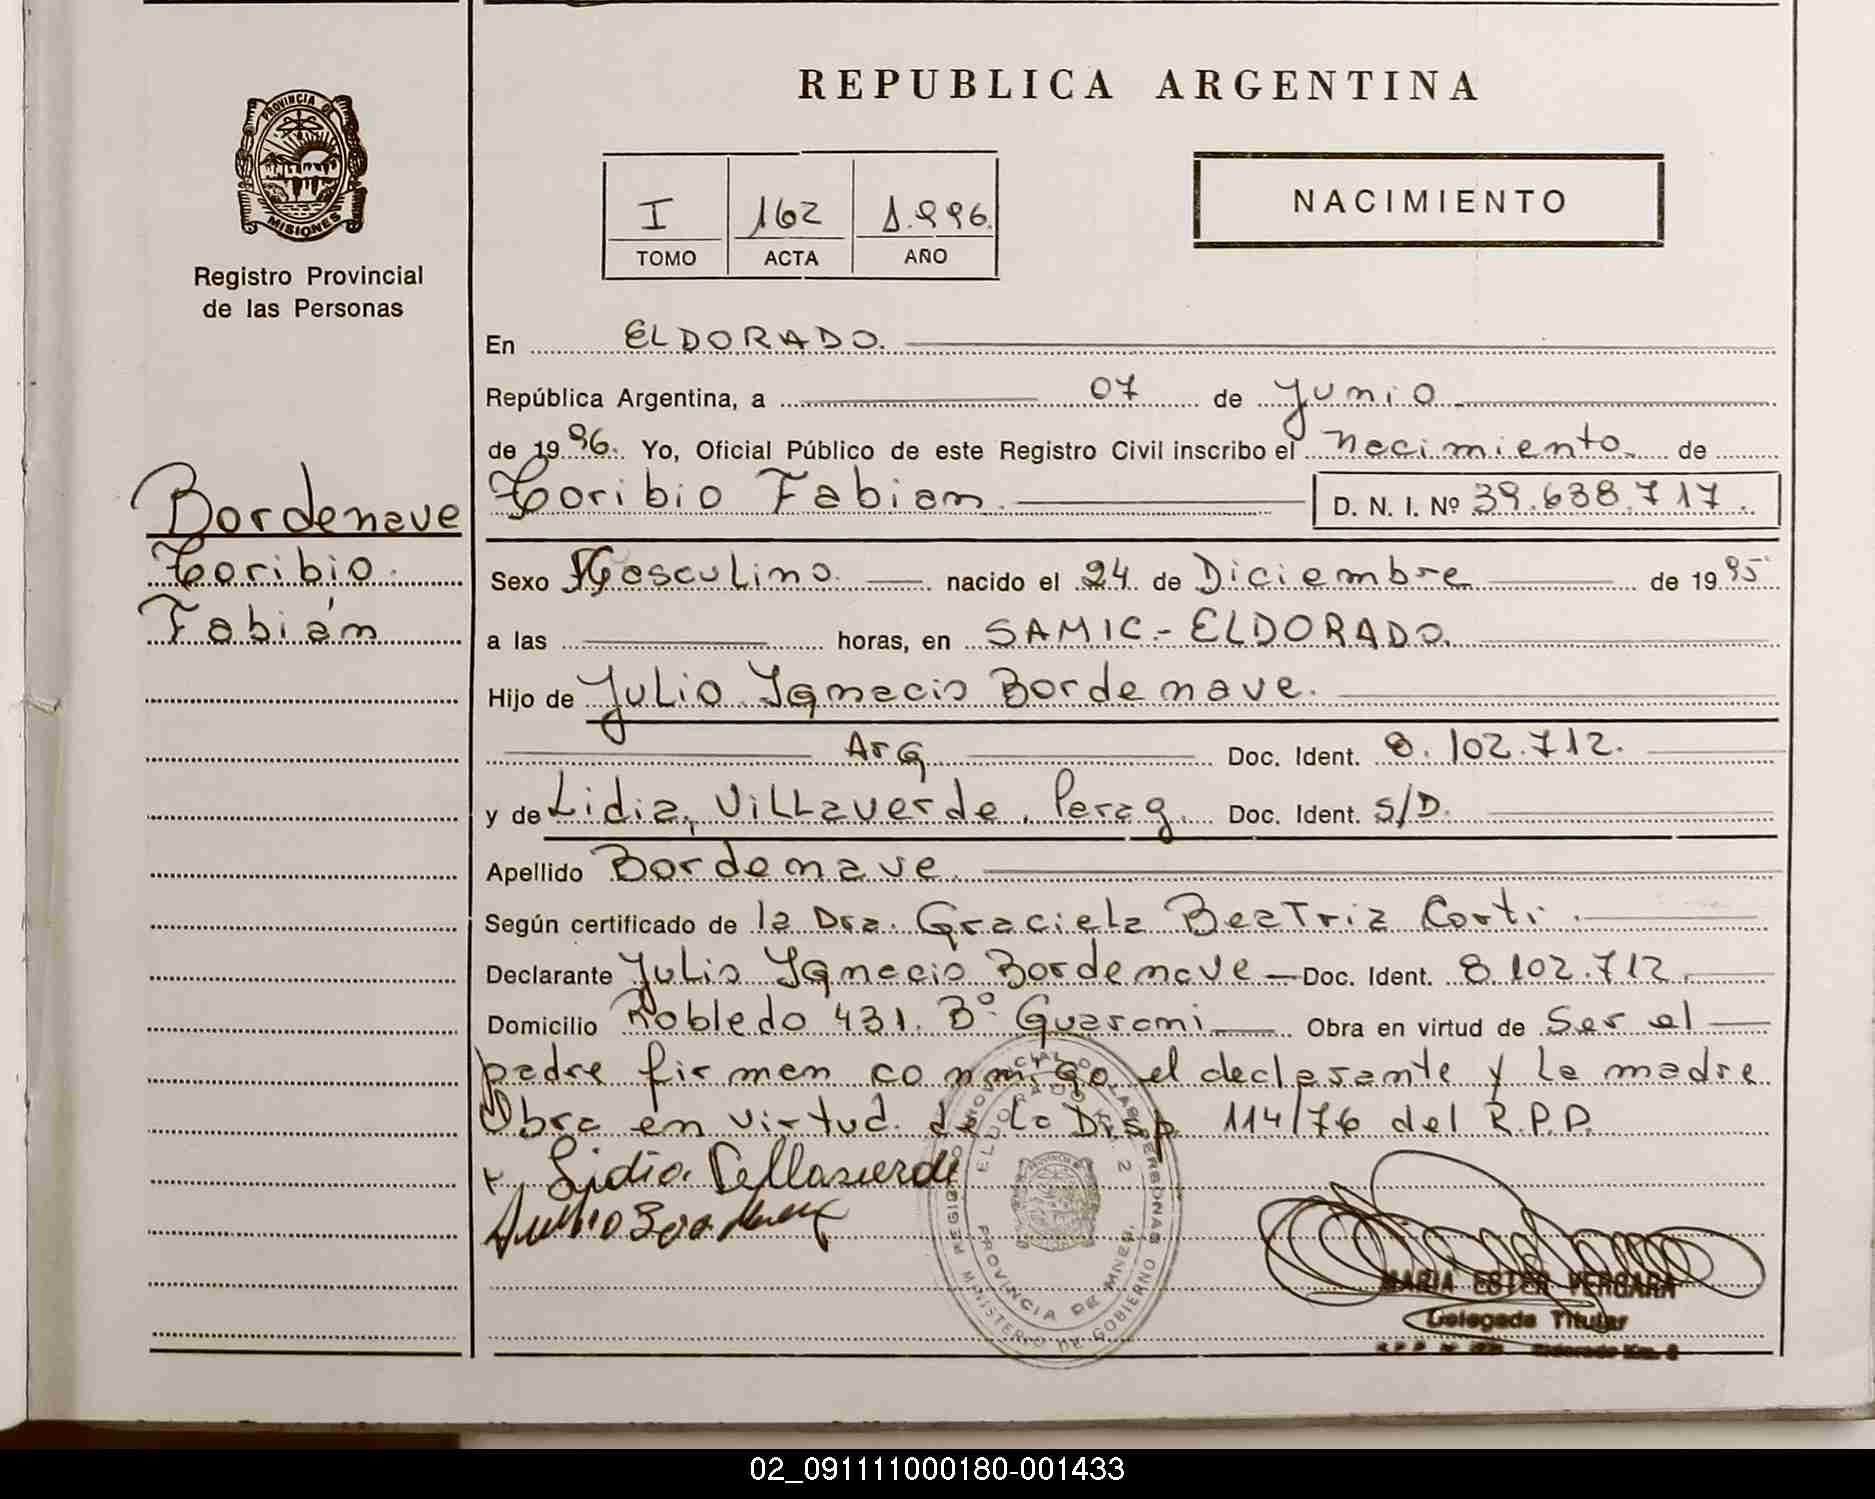 REPUBLICA ARGENTINA
PROVINCIA DE
MISIONES
Registro Provincial
de las Personas
I 162 1.996.
TOMO ACTA AÑO
NACIMIENTO
En ELDORADO.
República Argentina, a 07 de Junio
de 1996. Yo, Oficial Público de este Registro Civil inscribo el Nacimiento de
Toribio Fabian D. N. I. Nº 39.638.717.
Bordenave
Toribio
Fabián
Sexo Masculino. nacido el 24 de Diciembre de 1995
a las horas, en SAMIC - ELDORADO.
Hijo de Julio Ignacio Bordenave.
Arg Doc. Ident. 8.102.712.
y de Lidia, Villaverde, Parag. Doc. Ident. S/D.
Apellido Bordenave
Según certificado de la Dra. Graciela Beatriz Corti.
Declarante Julio Ignacio Bordenave Doc. Ident. 8.102.712
Domicilio Robledo 431. Bº Guarani Obra en virtud de Ser el
padre firman conmigo el declarante y la madre
Obra en virtud de la Disp 114/76 del R.P.P.
x Lidia Villaverde
Julio Bordenave
REGISTRO PROVINCIAL DE LAS PERSONAS
ELDORADO KM. 2
PROVINCIA DE MNES.
MINISTERIO DE GOBIERNO
MARIA ESTER VERGARA
Delegada Titular
R.P.P. Eldorado Km. 2
02_091111000180-001433